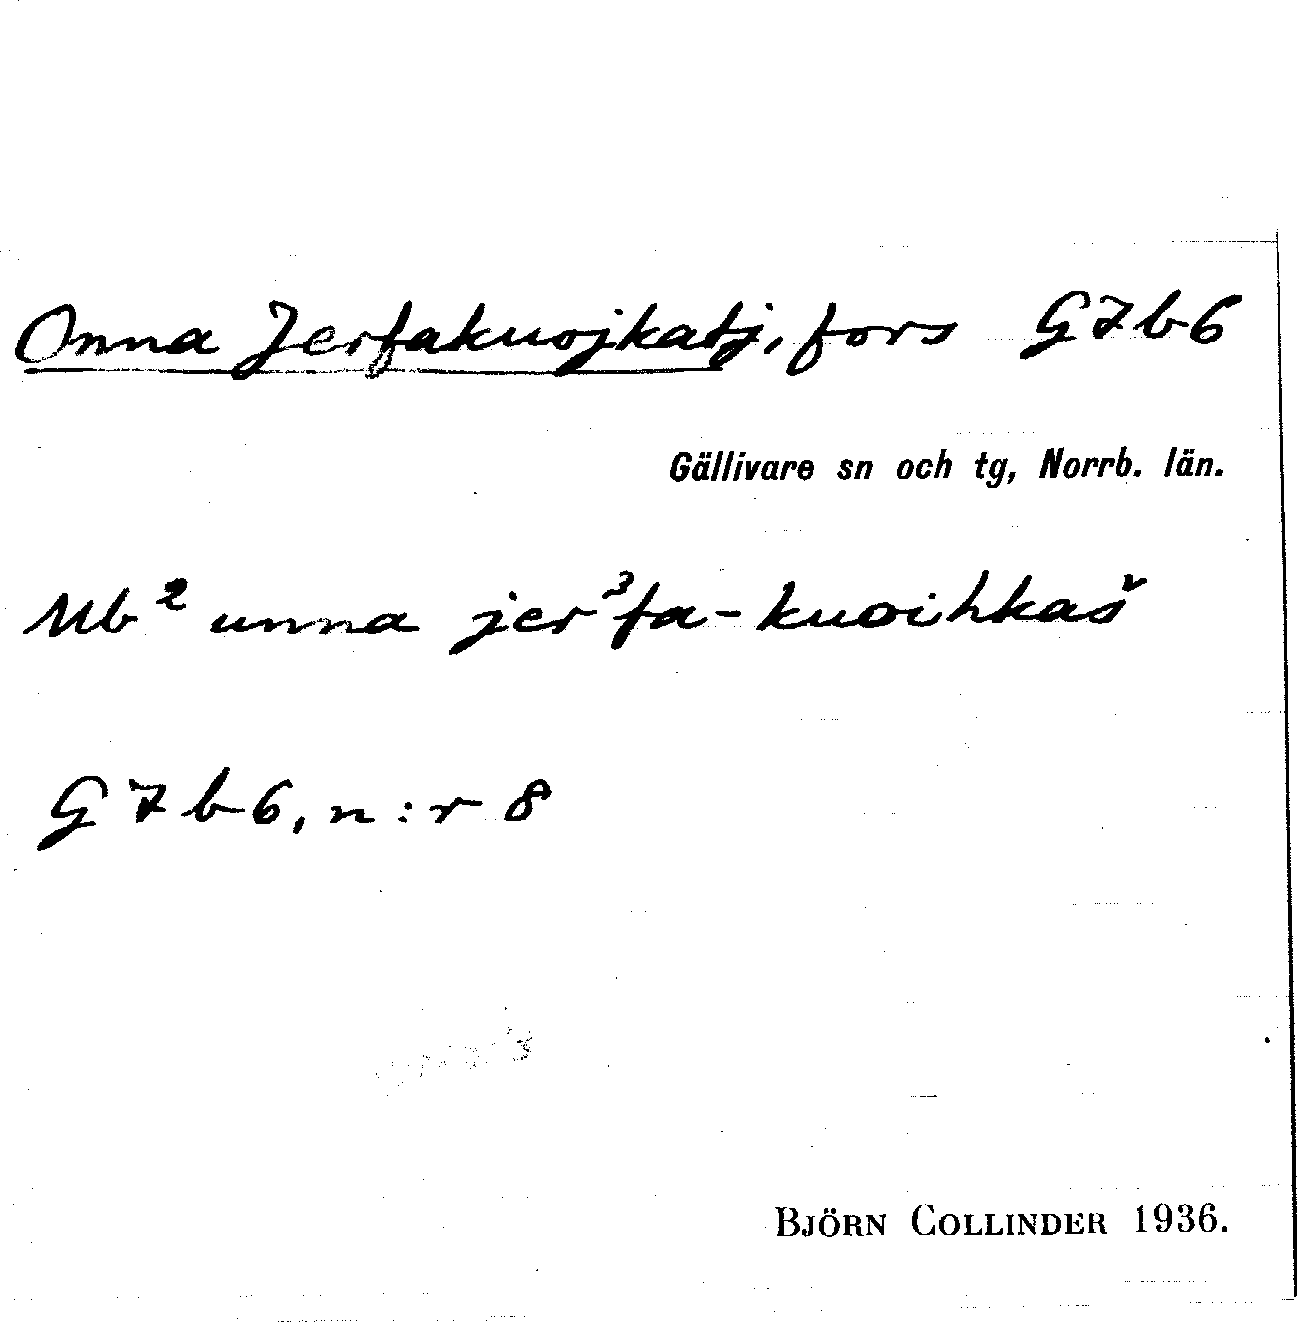 Onna Jerfakuojkatj, fors G7b6
Gällivare sn och tg, Norrb. län.
Mb² unna jer³fa-kuoihkaš
G7b6, n:r 8
BJÖRN COLLINDER 1936.